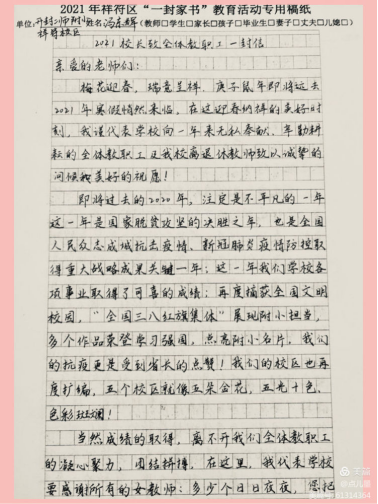 2021年祥符区“一封家书”教育活动专用稿纸
单位:开封二师附小 姓名 (教师口学生口家长口孩子口毕业生口妻子口丈夫口儿媳口)
祥符校区
2021校长致全体教职工一封信
亲爱的老师们:
梅花迎春,瑞雪呈祥,庚子鼠年即将远去
2021年寒假悄然来临,在这迎春纳祥的美好时
刻,我谨代表学校向一年来无私奉献,辛勤耕
耘的全体教职工及我校离退休教师致以诚挚的
问候和美好的祝愿!
即将过去的2020年,注定是不平凡的一年
这一年是国家脱贫攻坚的决胜之年,也是全国
人民众志成城抗击疫情、新冠肺炎疫情防控取
得重大战略成果关键一年;这一年我们学校各
项事业取得了可喜的成绩:再度摘获全国文明
校园,“全国三八红旗集体”展现附小担当,
多个作品荣登学习强国,点亮附小名片,我们
的抗疫更是受到省长的点赞!我们的校区也再
度扩编,五个校区就像五朵金花,五光十色,
色彩斑斓!
当然成绩的取得,离不开我们全体教职工
的凝心聚力,团结拼搏,在这里,我代表学校
要感谢所有的女教师:多少个日日夜夜,您把